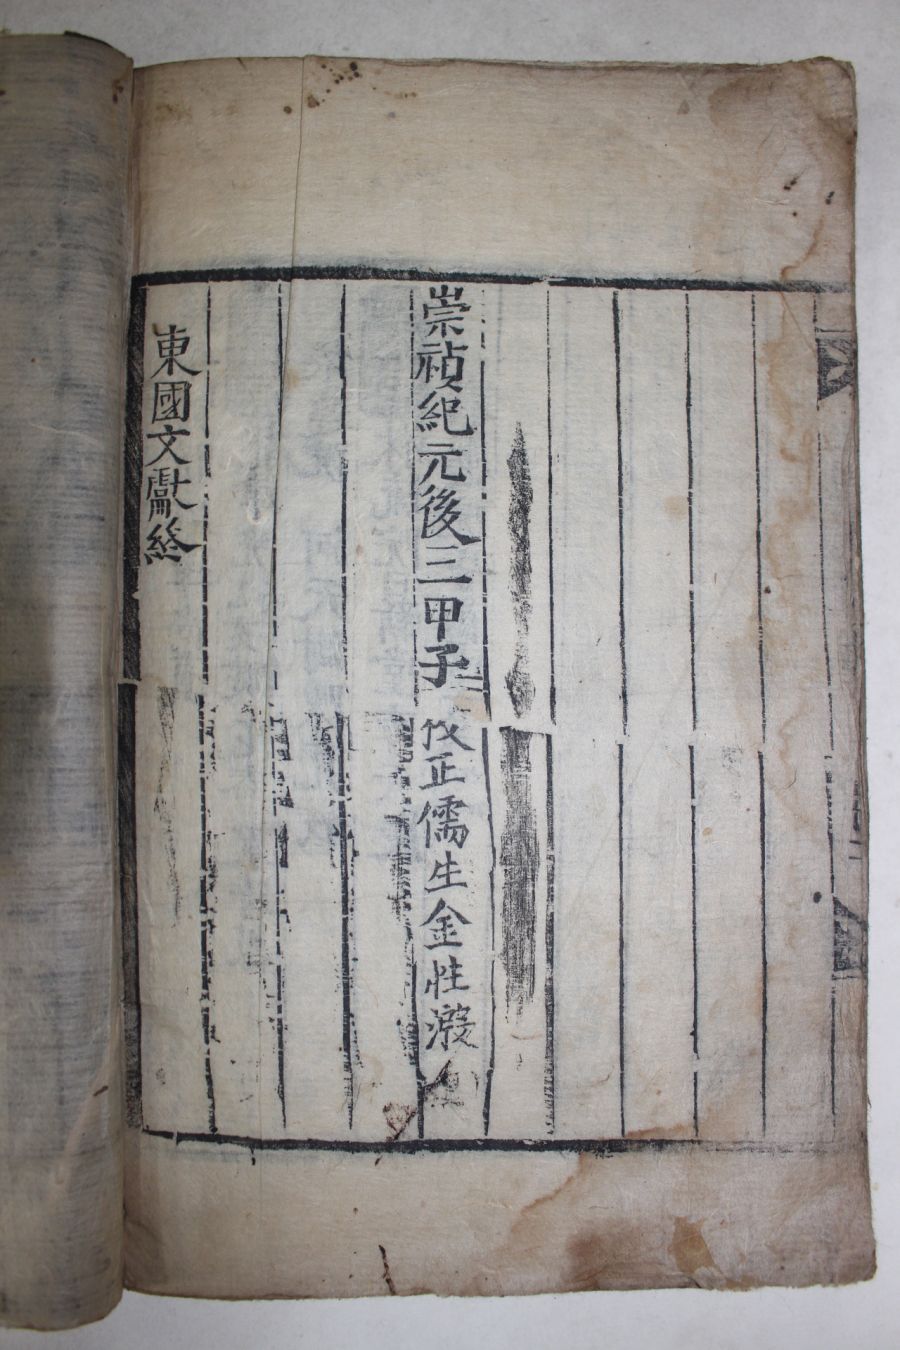 崇禎紀元後三甲子 攷正儒生金性溵
東國文獻終